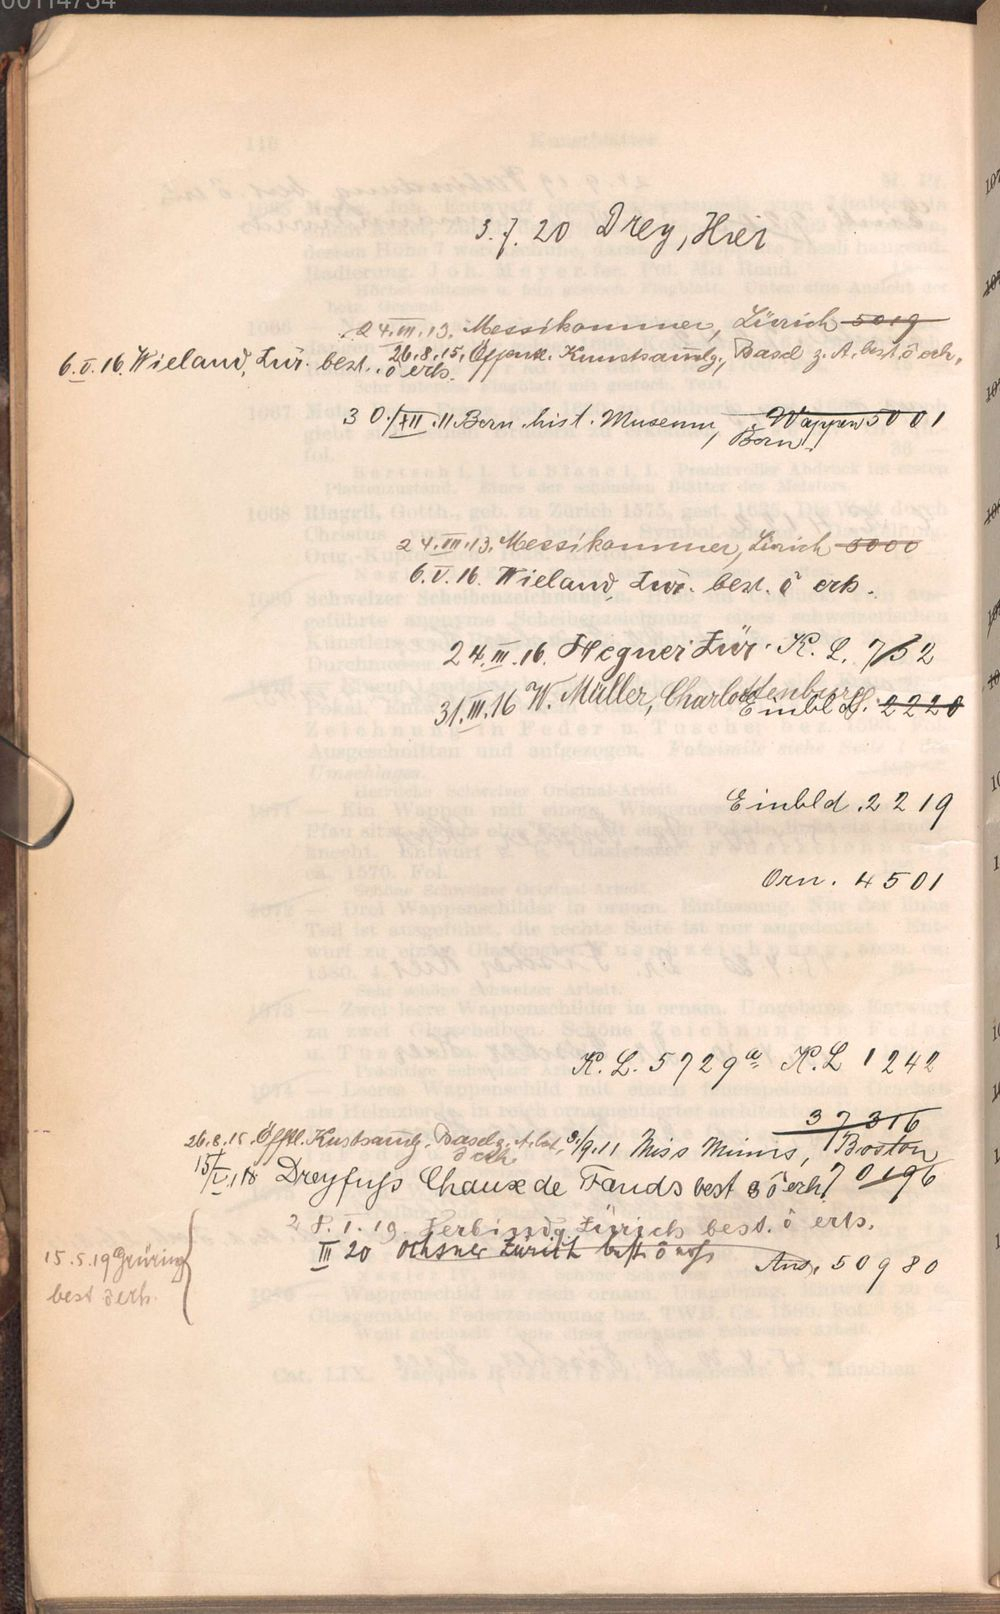 00114734
3.7.20 Drey, Hier
24.III.13. Messikommer, Zürich 5019
6.V.16. Wieland, Zür. best. ō erh. 26.8.15, Öffentl. Kunstsamlg., Basel z. A. best. ō erh.
30./XII.11 Bern. hist. Museum, Wappen 5001
Bern!
24.III.13. Messikommer, Zürich 5000
6.V.16. Wieland, Zür. best. ō erh.
24.III.16. Hegner Zür. K. L. 752
31.III.16 W. Müller, Charlottenburg
Einbl d. 2220
Einbld. 2219
Orn. 4501
K. L. 5729a K. L 1242
37316
26.8.15. Öfftl. Kustsamlg. Basel z. A. best. ō erh 9./9.11 Miss Mimis, Boston
15/V.18 Dreyfuss Chaux de Fonds best ō erh. 70196
28.I.19. Zürich best. ō erh.
III 20 Ochsner Zürich best. ō
Ans. 50980
15.5.19 Grüring
best ō erh.